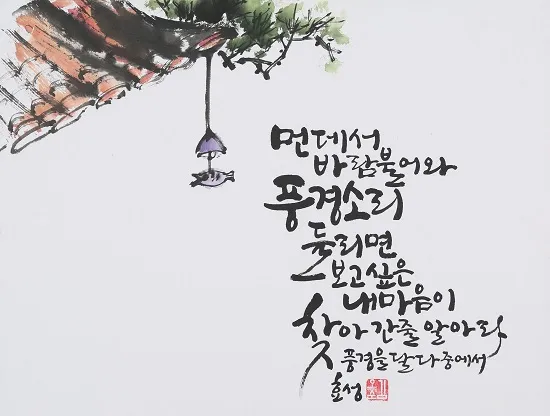 먼데서
바람불어와
풍경소리
들리면
보고싶은
내마음이
찾아간줄알아라
풍경을달다중에서
효성